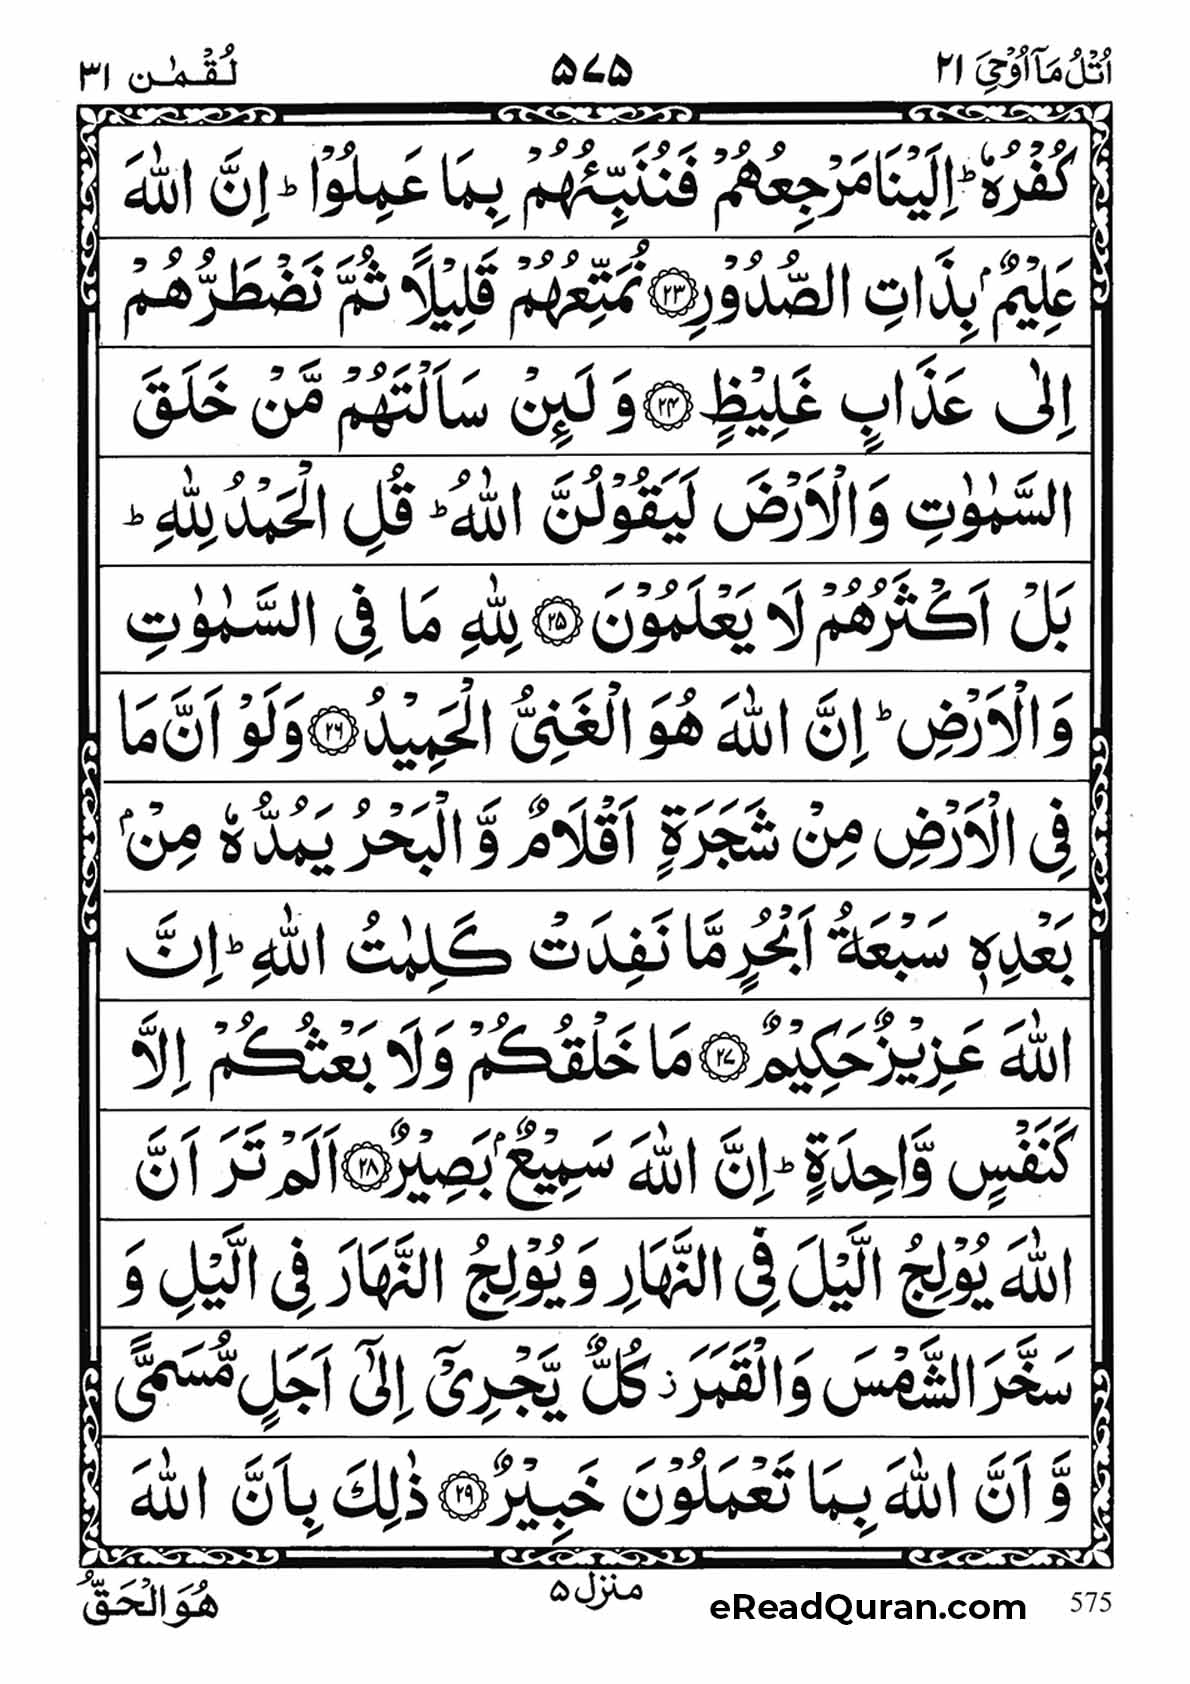 اُتْلُ مَاۤ اُوْحِیَ ۲۱ ۵۷۵ لُقْمٰن ۳۱
كُفْرُهٗ ؕ اِلَیْنَا مَرْجِعُهُمْ فَنُنَبِّئُهُمْ بِمَا عَمِلُوْا ؕ اِنَّ اللّٰهَ
عَلِیْمٌۢ بِذَاتِ الصُّدُوْرِ ﴿۲۳﴾ نُمَتِّعُهُمْ قَلِیْلًا ثُمَّ نَضْطَرُّهُمْ
اِلٰی عَذَابٍ غَلِیْظٍ ﴿۲۴﴾ وَ لَىِٕنْ سَاَلْتَهُمْ مَّنْ خَلَقَ
السَّمٰوٰتِ وَالْاَرْضَ لَیَقُوْلُنَّ اللّٰهُ ؕ قُلِ الْحَمْدُ لِلّٰهِ ؕ
بَلْ اَكْثَرُهُمْ لَا یَعْلَمُوْنَ ﴿۲۵﴾ لِلّٰهِ مَا فِی السَّمٰوٰتِ
وَالْاَرْضِ ؕ اِنَّ اللّٰهَ هُوَ الْغَنِیُّ الْحَمِیْدُ ﴿۲۶﴾ وَلَوْ اَنَّ مَا
فِی الْاَرْضِ مِنْ شَجَرَةٍ اَقْلَامٌ وَّ الْبَحْرُ یَمُدُّهٗ مِنْۢ
بَعْدِهٖ سَبْعَةُ اَبْحُرٍ مَّا نَفِدَتْ كَلِمٰتُ اللّٰهِ ؕ اِنَّ
اللّٰهَ عَزِیْزٌ حَكِیْمٌ ﴿۲۷﴾ مَا خَلْقُكُمْ وَلَا بَعْثُكُمْ اِلَّا
كَنَفْسٍ وَّاحِدَةٍ ؕ اِنَّ اللّٰهَ سَمِیْعٌۢ بَصِیْرٌ ﴿۲۸﴾ اَلَمْ تَرَ اَنَّ
اللّٰهَ یُوْلِجُ الَّیْلَ فِی النَّهَارِ وَ یُوْلِجُ النَّهَارَ فِی الَّیْلِ وَ
سَخَّرَ الشَّمْسَ وَالْقَمَرَ ؗ كُلٌّ یَّجْرِیْۤ اِلٰۤی اَجَلٍ مُّسَمًّی
وَّ اَنَّ اللّٰهَ بِمَا تَعْمَلُوْنَ خَبِیْرٌ ﴿۲۹﴾ ذٰلِكَ بِاَنَّ اللّٰهَ
هُوَ الْحَقُّ منزل ۵ eReadQuran.com 575